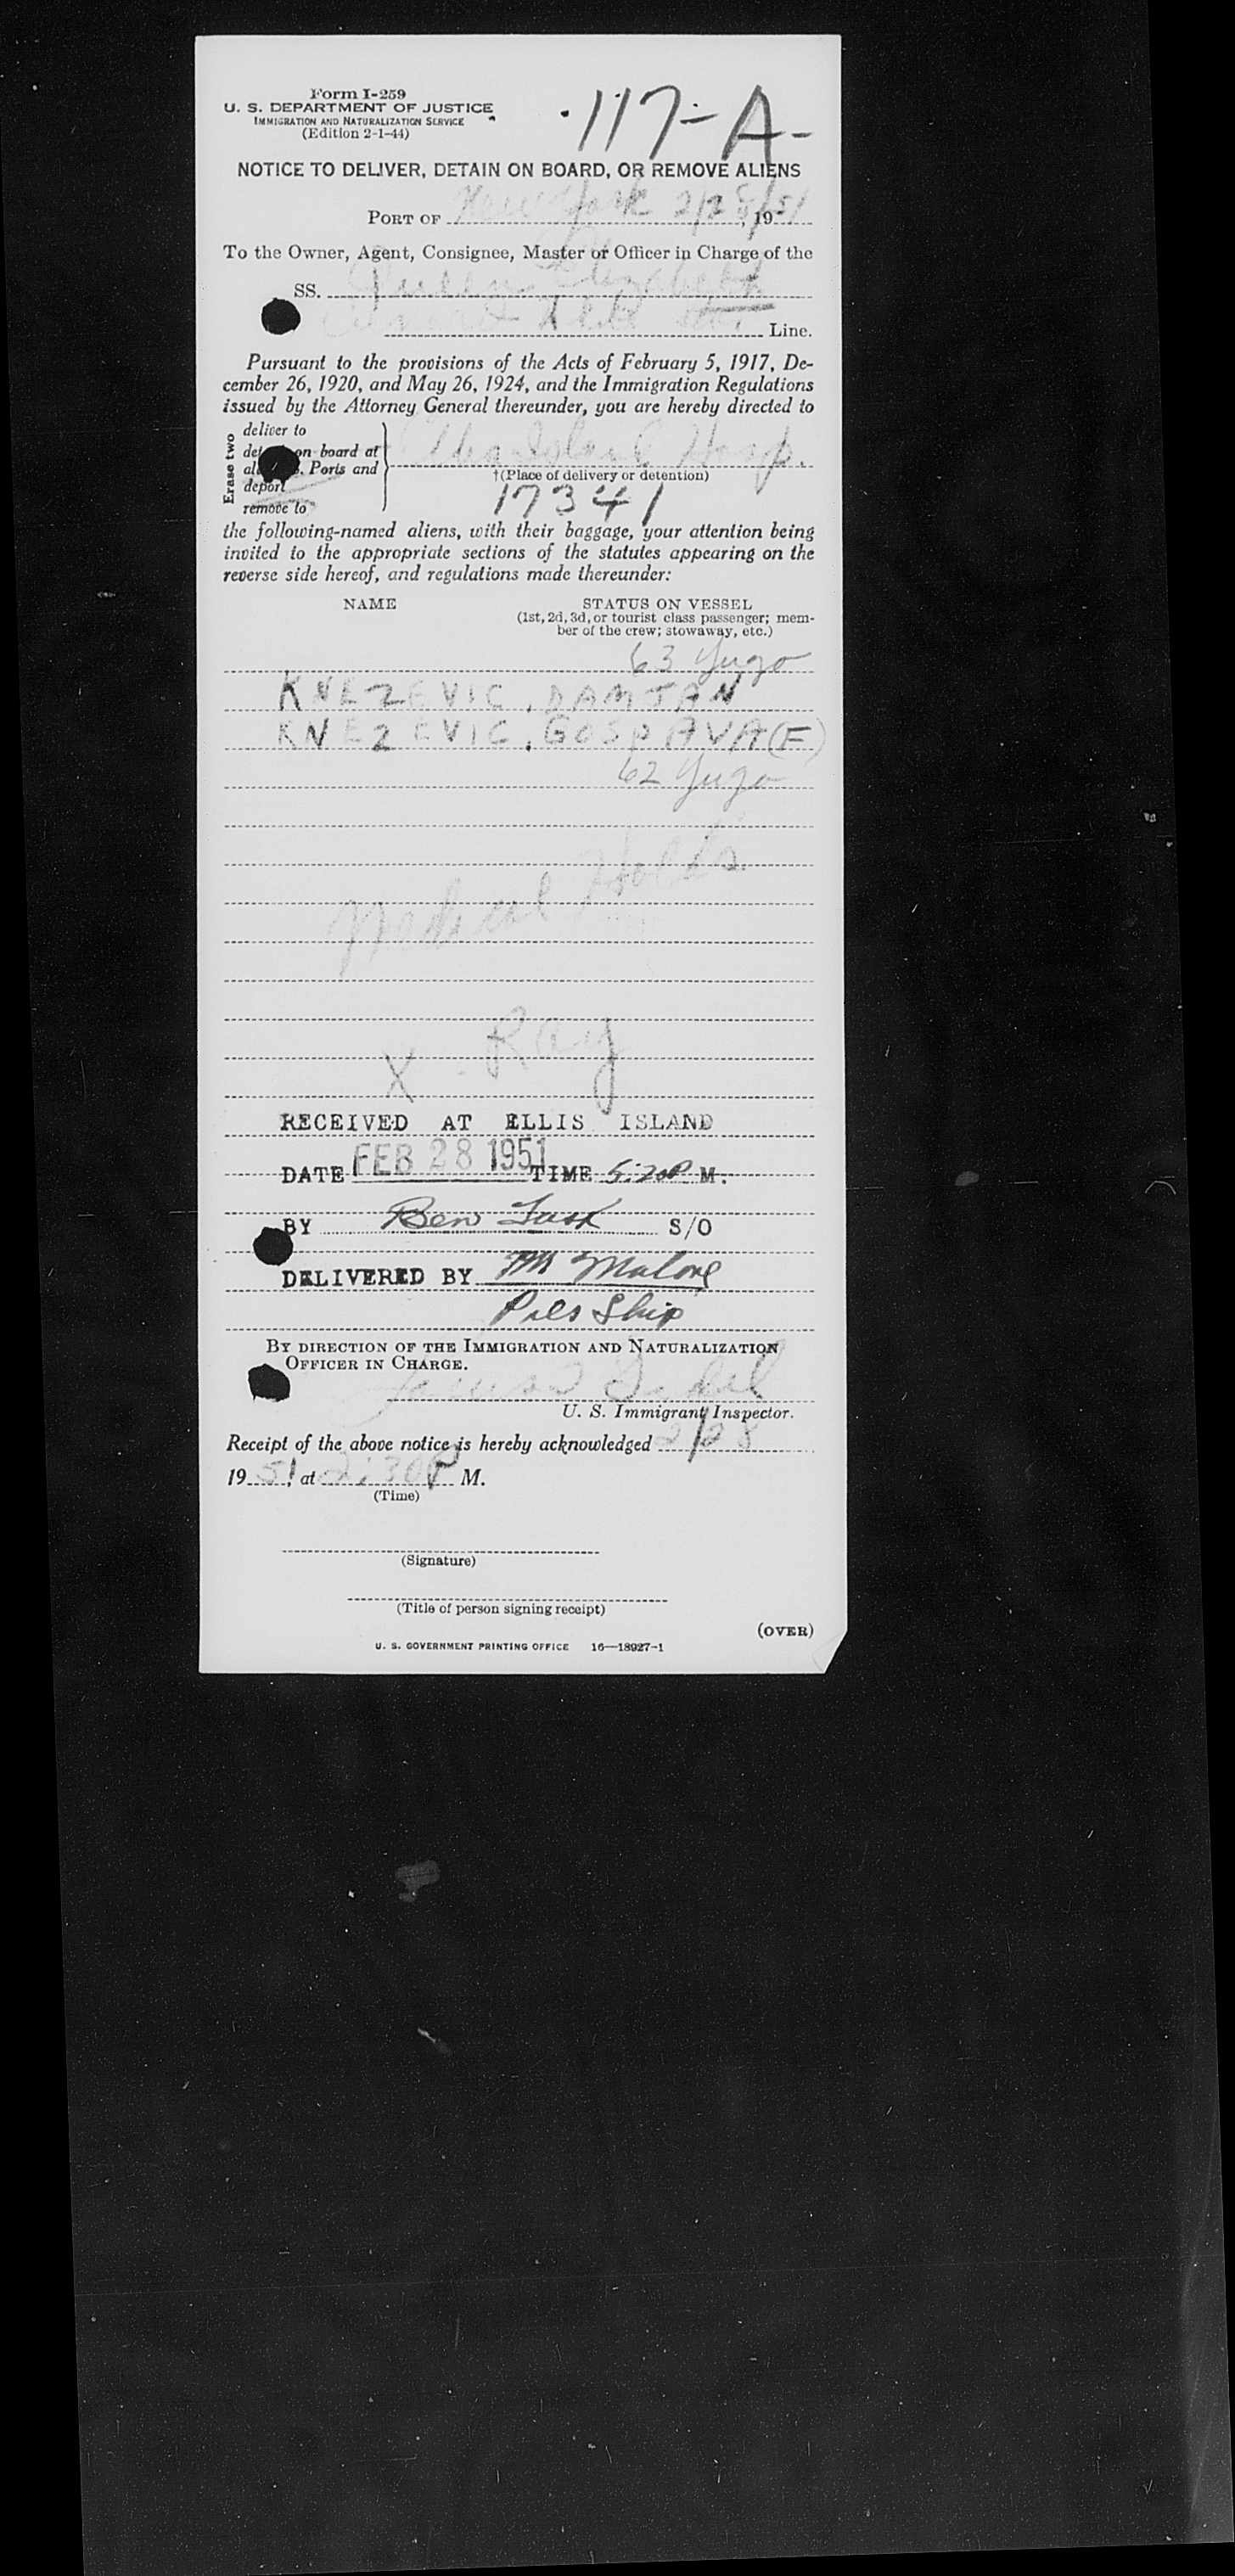 Form I-259
U. S. DEPARTMENT OF JUSTICE
IMMIGRATION AND NATURALIZATION SERVICE
(Edition 2-1-44)
117-A-
NOTICE TO DELIVER, DETAIN ON BOARD, OR REMOVE ALIENS
PORT OF New York 2/28, 1951
To the Owner, Agent, Consignee, Master or Officer in Charge of the
SS. Queen Elizabeth
Line.
Pursuant to the provisions of the Acts of February 5, 1917, De-
cember 26, 1920, and May 26, 1924, and the Immigration Regulations
issued by the Attorney General thereunder, you are hereby directed to
Erase two
deliver to
on board at
Ports and
deport
remove to
Hosp.
†(Place of delivery or detention)
17341
the following-named aliens, with their baggage, your attention being
invited to the appropriate sections of the statutes appearing on the
reverse side hereof, and regulations made thereunder:
NAME STATUS ON VESSEL
(1st, 2d, 3d, or tourist class passenger; mem-
ber of the crew; stowaway, etc.)
63 Yugo
KNEZEVIC, DAMJAN
KNEZEVIC, GOSPAVA (F)
62 Yugo
Medical Holds
X-Ray
RECEIVED AT ELLIS ISLAND
DATE FEB 28 1951 TIME 5:20P M.
BY Ben S/O
DELIVERED BY M Malone
Ship
BY DIRECTION OF THE IMMIGRATION AND NATURALIZATION
OFFICER IN CHARGE.
U. S. Immigrant Inspector.
Receipt of the above notice is hereby acknowledged 2/28
1951, at 2:30P M.
(Time)
(Signature)
(Title of person signing receipt)
(OVER)
U. S. GOVERNMENT PRINTING OFFICE 16—18927-1